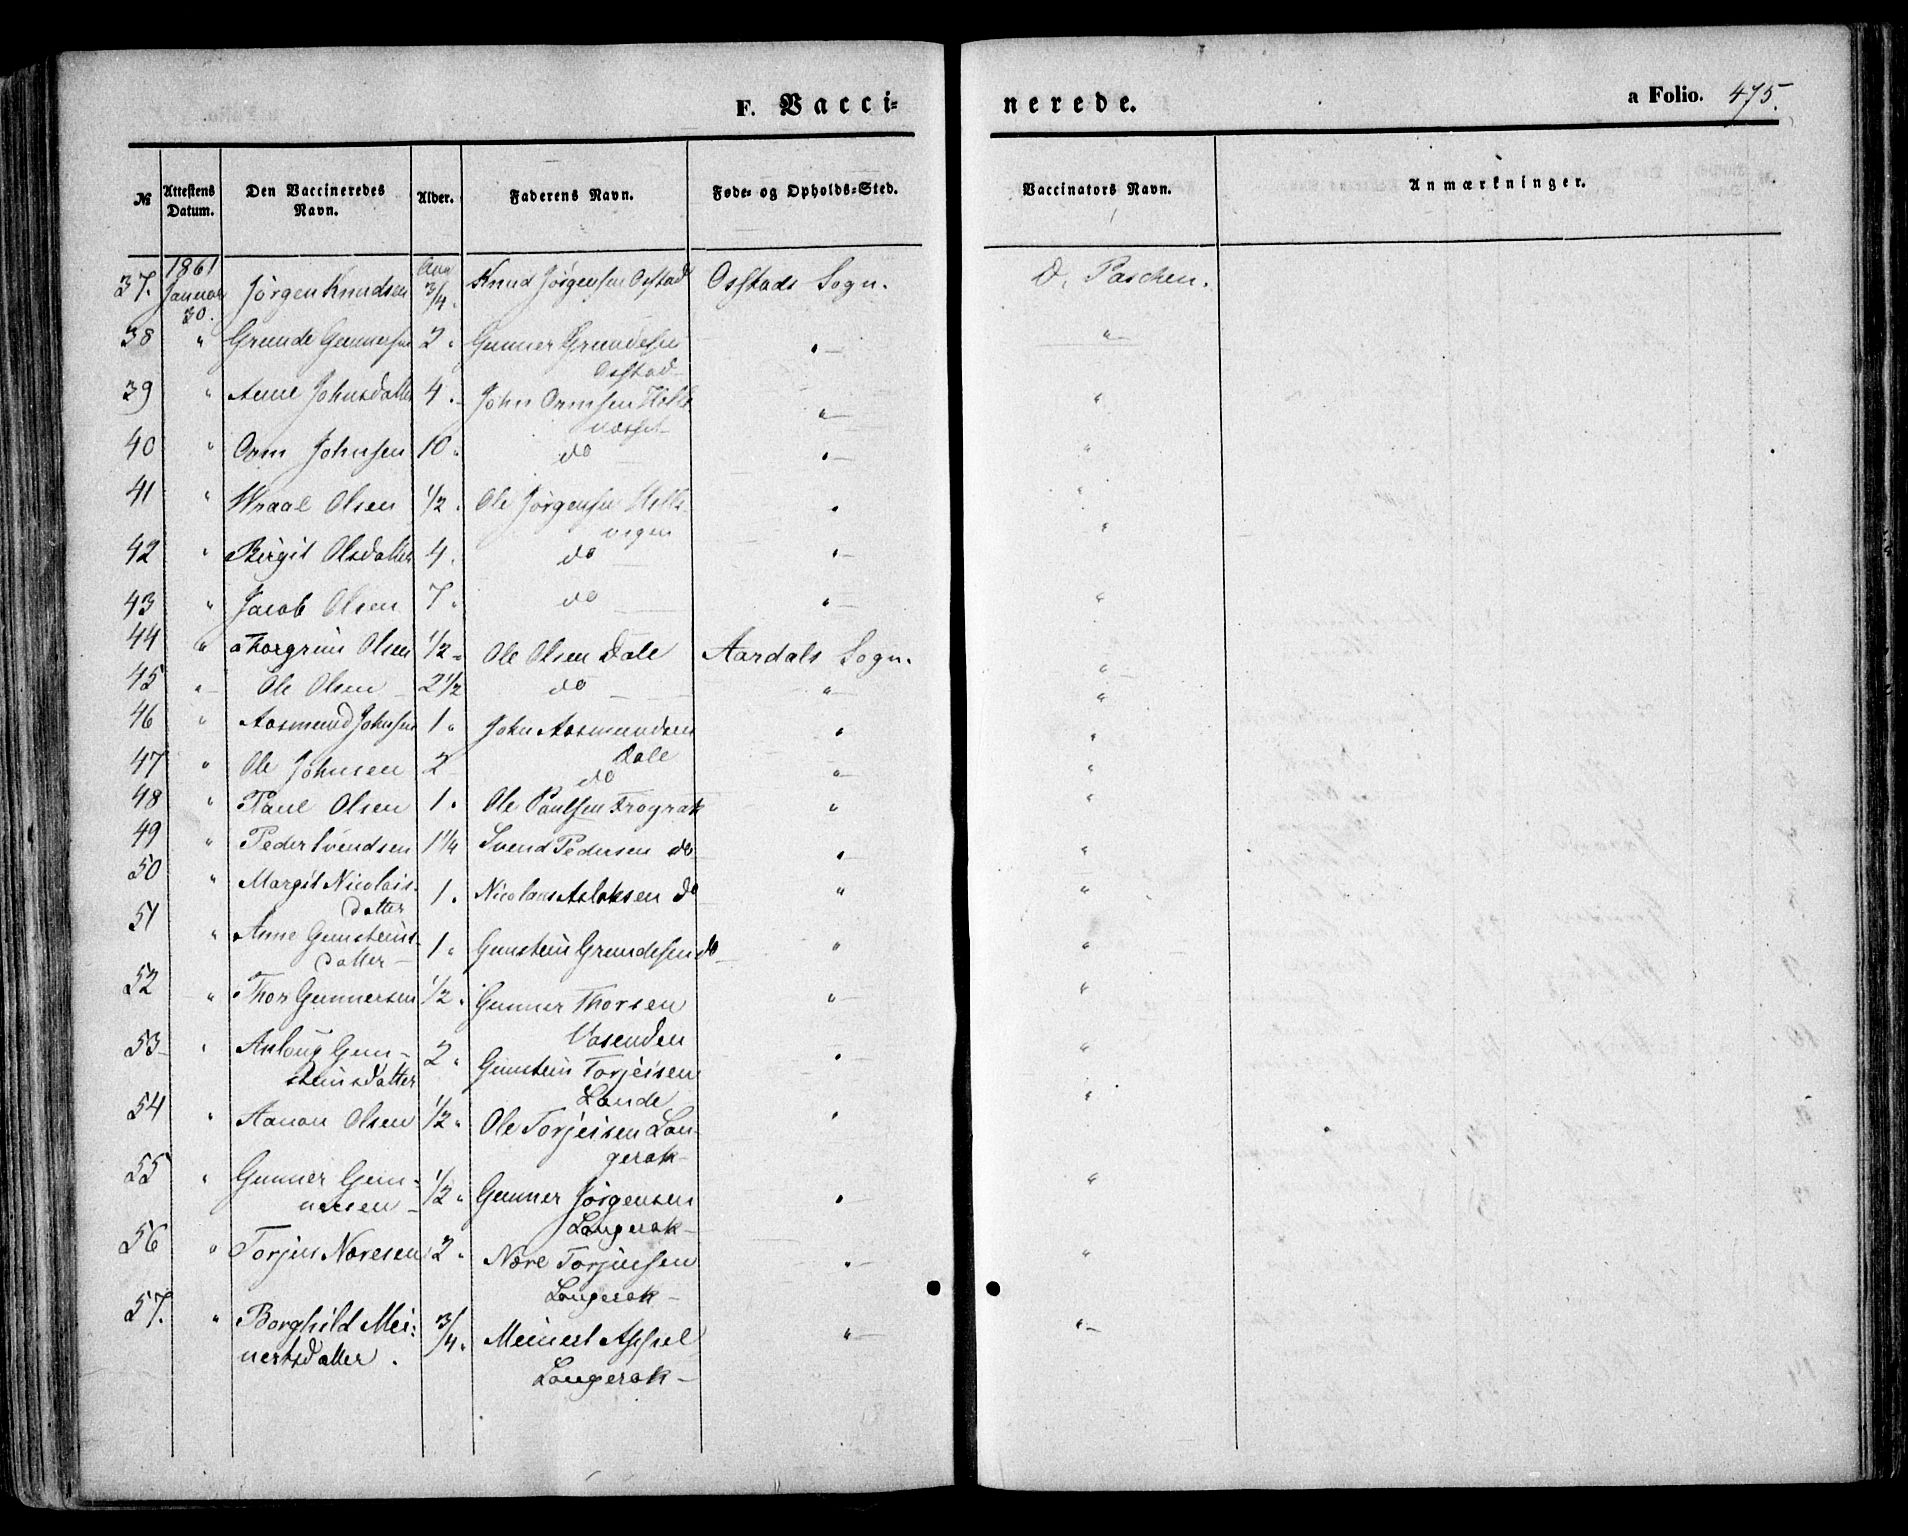 F. Vacci-
nerede.
a Folio. 475.
№ Attestens Datum. Den Vaccineredes Navn. Alder. Faderens Navn. Føde- og Opholds-Sted. Vaccinators Navn. Anmærkninger.
1861 Aar
37. Januar 30. Jørgen Knudsen 3/4. Knud Jørgensen Osstad Osstads Sogn. D. Paschen.
38 " Grunde Gunnersen 2 " Gunner Grundesen " — "
Osstad
39 " Anne Johnsdatter 4. John Ormsen Helle " — "
næsset
40 " Orm Johnsen 10 " do " — "
41 " Wraal Olsen 1/2 " Ole Jørgensen Helle " "
vigen
42 " Birgit Olsdatter 4. do " — "
43 " Jacob Olsen 7 " do " — "
44 " Thorgrim Olsen 1/2 " Ole Olsen Dale Aardals Sogn. "
45 " Ole Olsen 2 1/2 do " "
46 " Aasmund Johnsen 1 " John Aasmundsen " "
Dale
47 " Ole Johnsen 2 do " "
48 " Paul Olsen 1. Ole Paulsen Frøyrak " "
49 " Peder Svendsen 1 1/4 Svend Pedersen do " "
50 " Margit Nicolais- 1. Nicolaus Aslaksen do " "
datter
51 " Anne Gunsteins- 1 " Gunstein Grundesen do " "
datter
52 " Thor Gunnersen 1/2 " Gunner Thorsen " — "
Vasenden
53 " Aslaug Gun- 2 " Gunstein Torjeisen " "
steinsdatter Lande
54 " Aanon Olsen 1/2 " Ole Torjeisen Lan- " "
gerak
55 " Gunner Gun- 1/2 " Gunner Jørgensen " — "
nersen Langerak
56 " Torjus Noresen 2 " Nore Torjusen " — "
Langerak
57. " Borghild Mei- 3/4. Meinert Appel " — " —
nertsdatter. Langerak